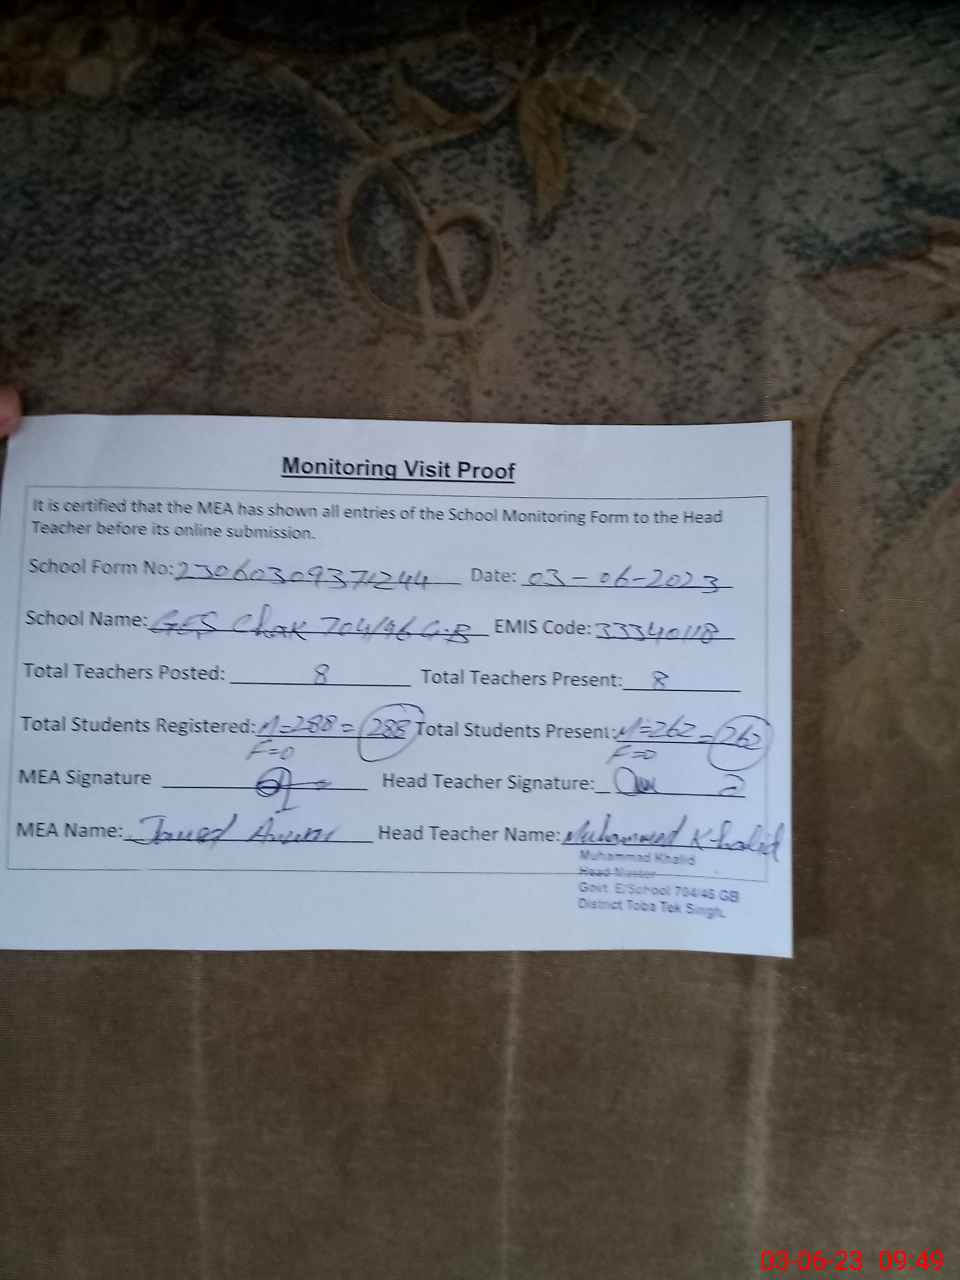 Monitoring Visit Proof
It is certified that the MEA has shown all entries of the School Monitoring Form to the Head
Teacher before its online submission.
School Form No: 23060309371244 Date: 03-06-2023
School Name: GES Chak 704/46 G.B EMIS Code: 33340118
Total Teachers Posted: 8 Total Teachers Present: 8
Total Students Registered: M=288=288 Total Students Present: M=262=262
F=0 F=0
MEA Signature Head Teacher Signature:
MEA Name: Head Teacher Name: Muhammad Khalid
Muhammad Khalid
Head Master
Govt. E/School 704/45 GB
District Toba Tek Singh.
03-06-23 09:49